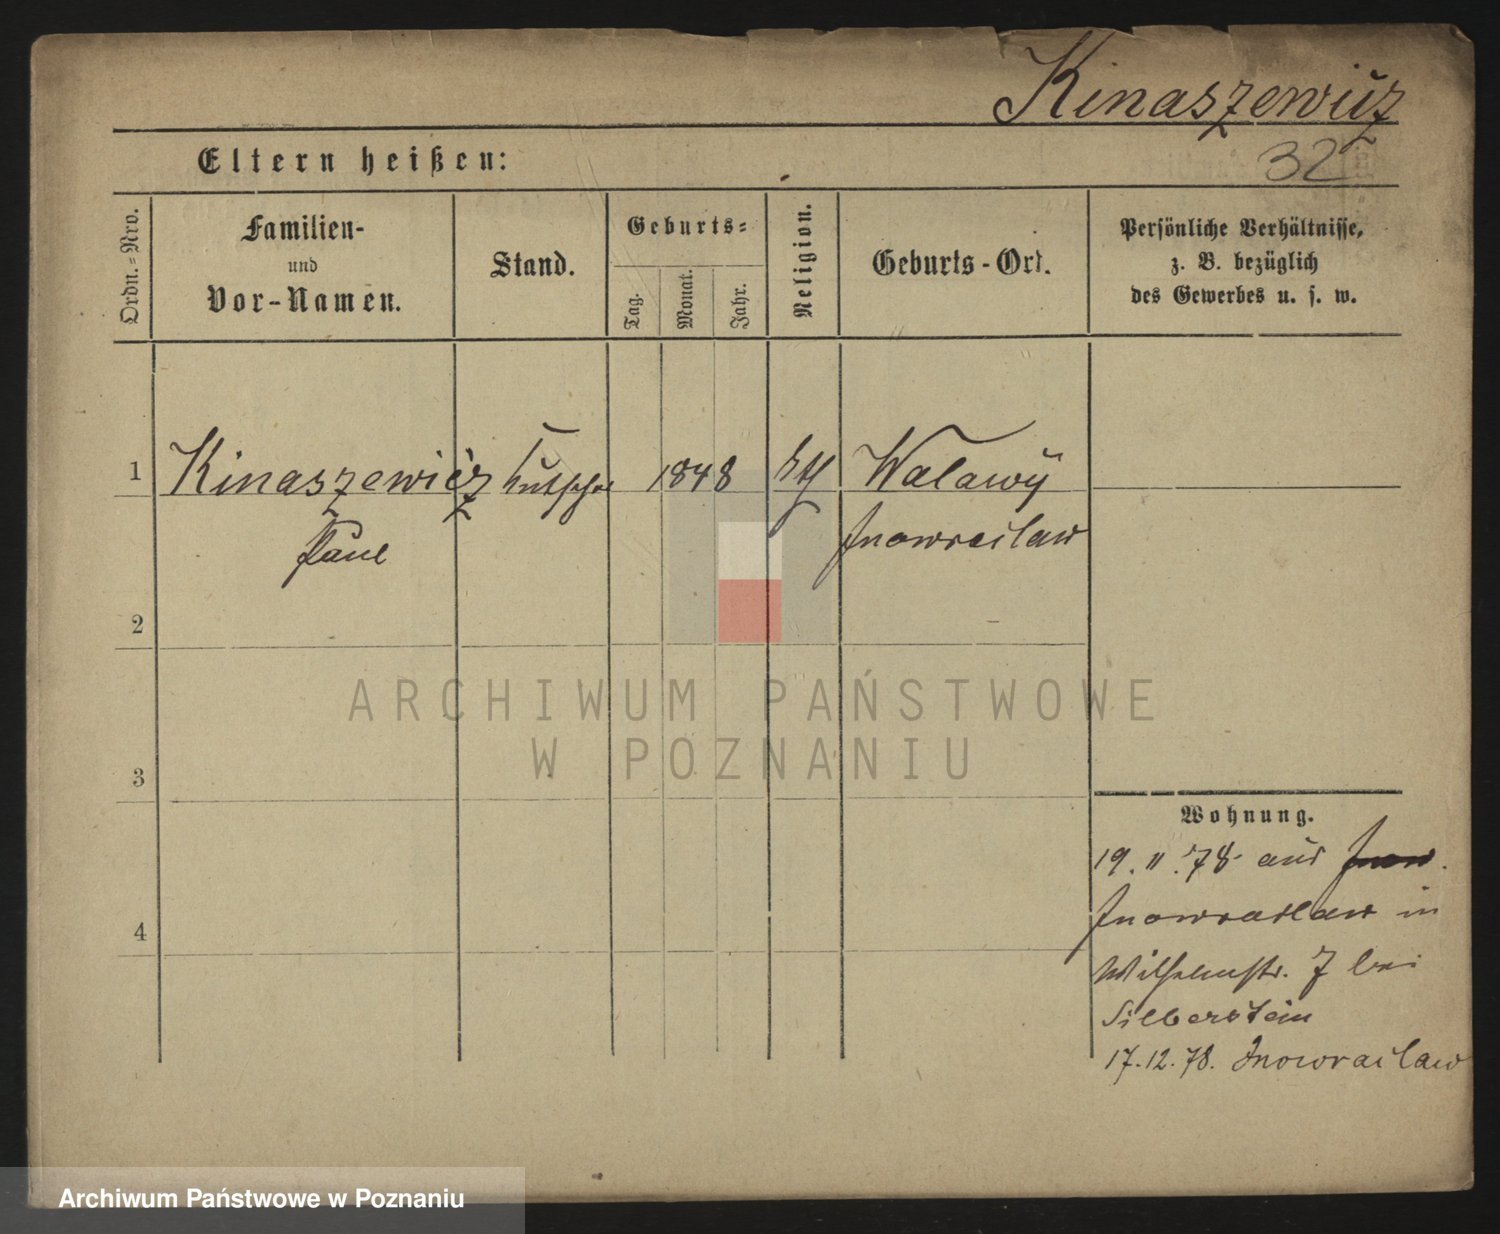 Kinaszewicz
32
Eltern heißen:
Ordn.-Nro.
Familien-
und
Vor-Namen.
Stand.
Geburts-
Tag.
Monat.
Jahr.
Religion.
Geburts-Ort.
Persönliche Verhältnisse,
z. B. bezüglich
des Gewerbes u. s. w.
1
Kinaszewicz Kutscher 1848 kth Walawy
Paul Inowraclaw
2
3
4
Wohnung.
19.11.78 aus Inow.
Inowraclaw in
Wilhelmstr. 7 bei
Silberstein
17.12.78. Inowraclaw
ARCHIWUM PAŃSTWOWE
W POZNANIU
Archiwum Państwowe w Poznaniu